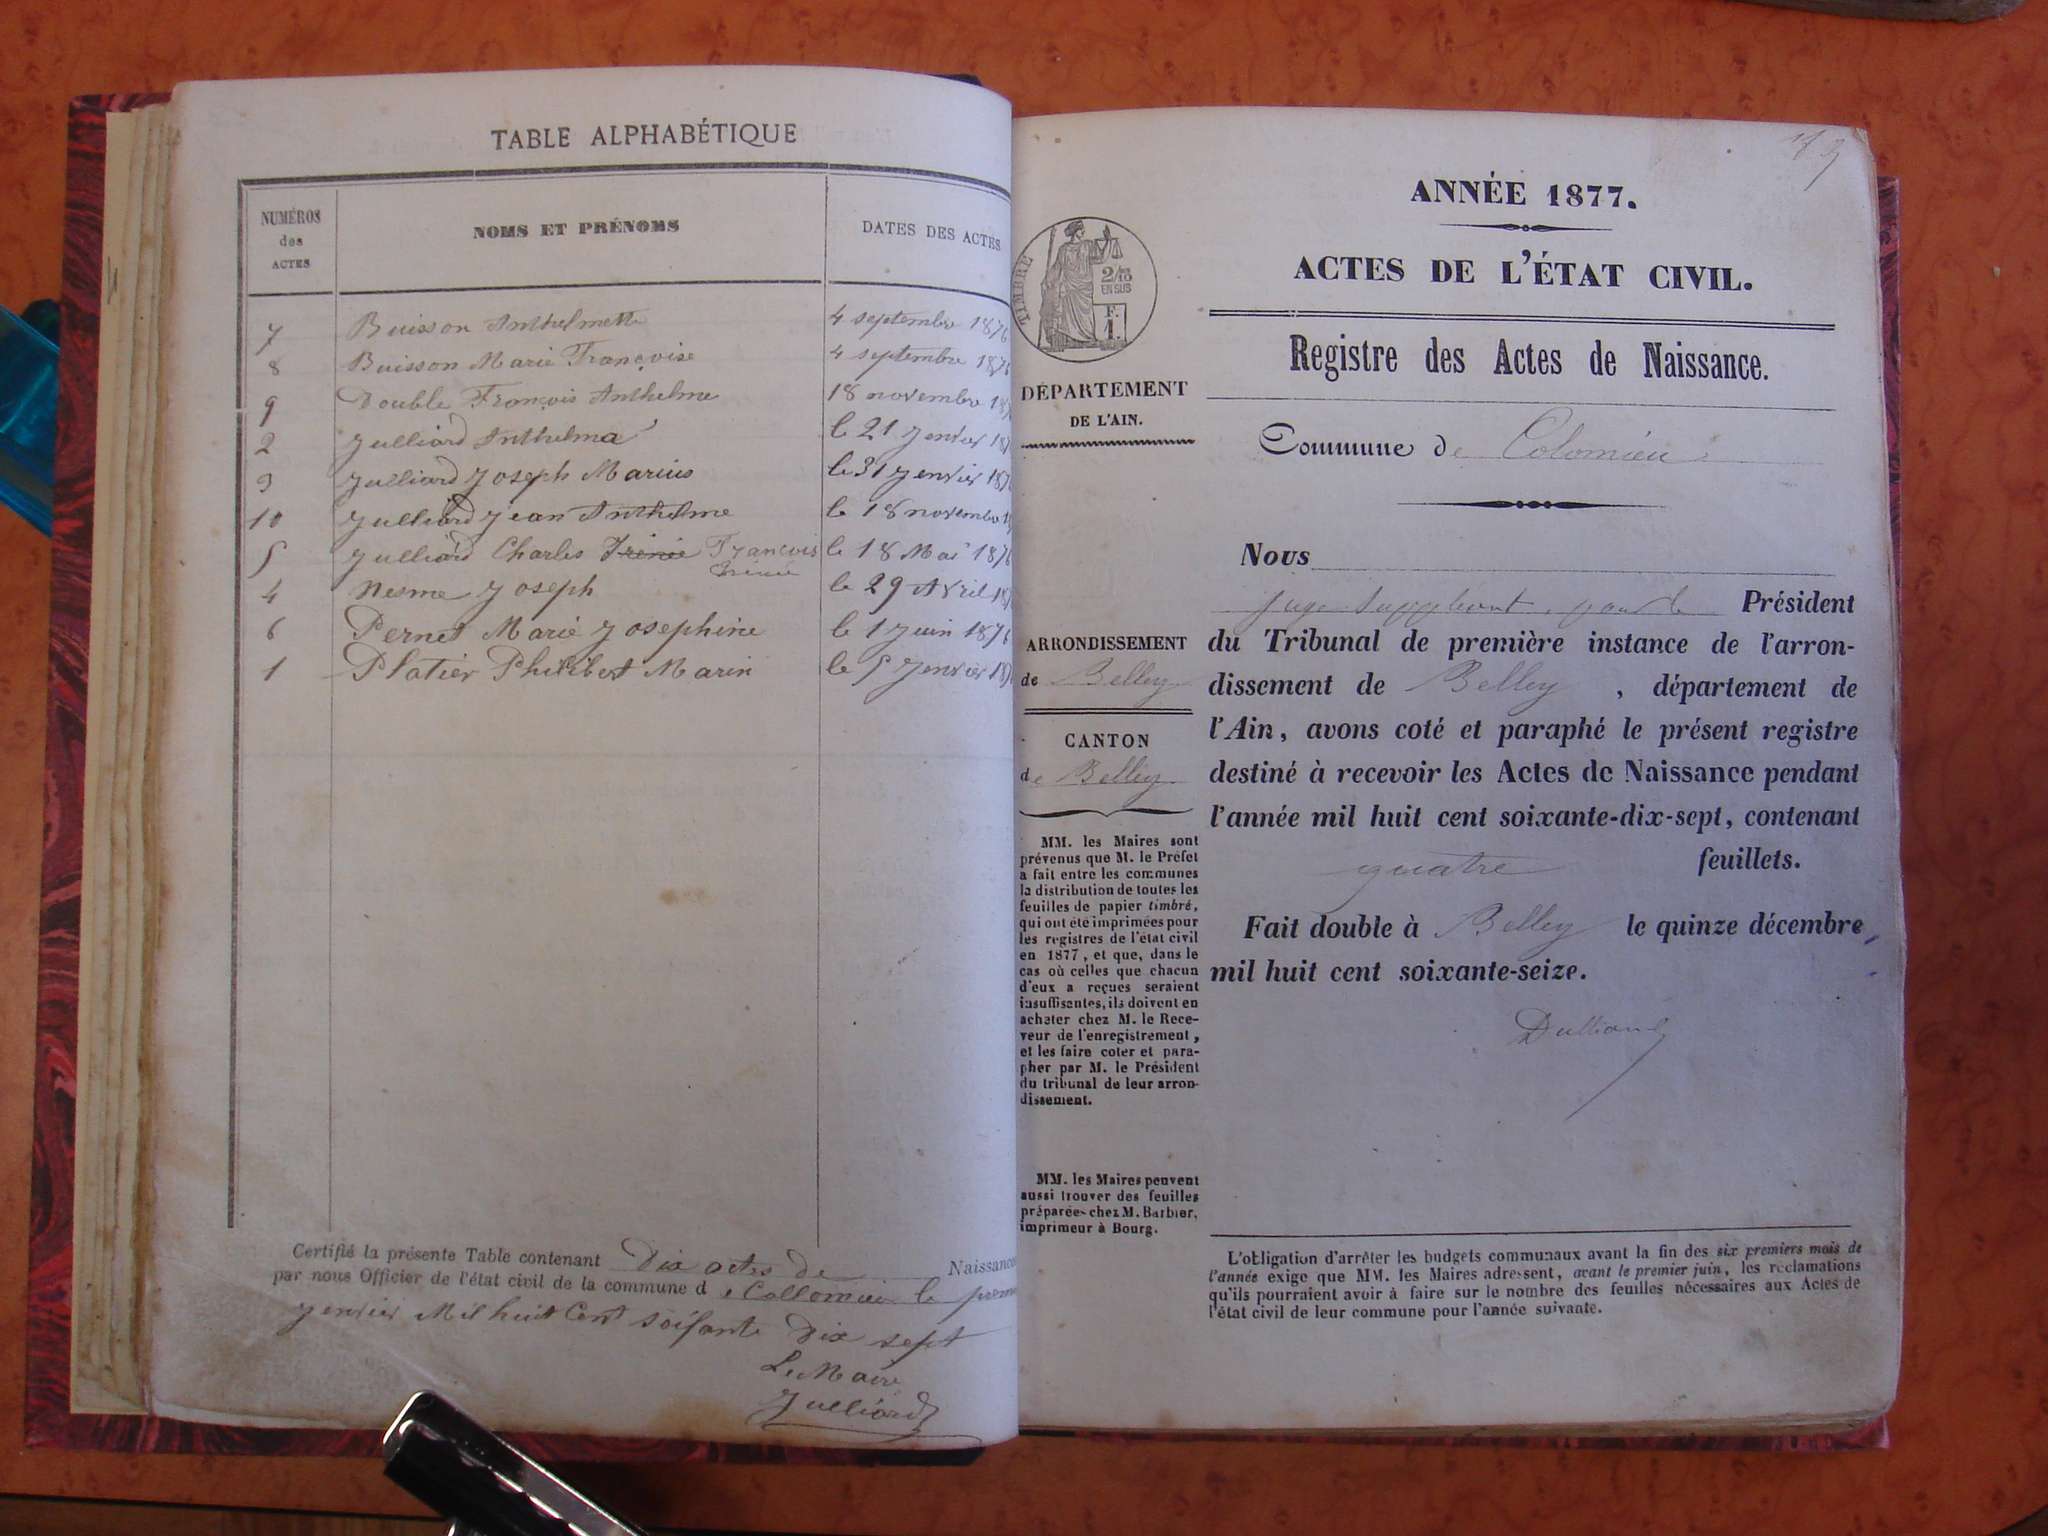 TABLE ALPHABÉTIQUE
NUMÉROS des ACTES NOMS ET PRÉNOMS DATES DES ACTES
7 Buisson Anthelmette 4 septembre 1876
8 Buisson Marie Françoise 4 septembre 1876
9 Double François Anthelme 18 novembre
2 Julliard Anthelma le 21 Jenvier
3 Julliard Joseph Marius le 31 Jenvier
10 Julliard Jean Anthelme le 18 novembre
5 Julliard Charles Irénée François le 18 Mai 1876
Irénée
4 Nesme Joseph le 29 Avril
6 Pernet Marie Josephine le 1 Juin 1876
1 Platier Philibert Marin le 5 Jenvier
Certifié la présente Table contenant Dix actes de Naissance
par nous Officier de l'état civil de la commune de Collomieu le prem
Jenvier Mil huit Cent soifante Dix sept
Le Maire
Julliard
ANNÉE 1877.
ACTES DE L'ÉTAT CIVIL.
Registre des Actes de Naissance.
TIMBRE
2/10 EN SUS
F. 1.
DÉPARTEMENT
DE L'AIN.
Commune de Colomieu
Nous
juge suppléant, pour le Président
du Tribunal de première instance de l'arron-
dissement de Belley, département de
l'Ain, avons coté et paraphé le présent registre
destiné à recevoir les Actes de Naissance pendant
l'année mil huit cent soixante-dix-sept, contenant
quatre feuillets.
Fait double à Belley le quinze décembre
mil huit cent soixante-seize.
ARRONDISSEMENT
de Belley
CANTON
de Belley
MM. les Maires sont
prévenus que M. le Préfet
a fait entre les communes
la distribution de toutes les
feuilles de papier timbré,
qui ont été imprimées pour
les registres de l'état civil
en 1877, et que, dans le
cas où celles que chacun
d'eux a reçues seraient
insuffisantes, ils doivent en
acheter chez M. le Rece-
veur de l'enregistrement,
et les faire coter et para-
pher par M. le Président
du tribunal de leur arron-
dissement.
MM. les Maires peuvent
aussi trouver des feuilles
préparées chez M. Barbier,
imprimeur à Bourg.
L'obligation d'arrêter les budgets communaux avant la fin des six premiers mois de
l'année exige que MM. les Maires adressent, avant le premier juin, les réclamations
qu'ils pourraient avoir à faire sur le nombre des feuilles nécessaires aux Actes de
l'état civil de leur commune pour l'année suivante.